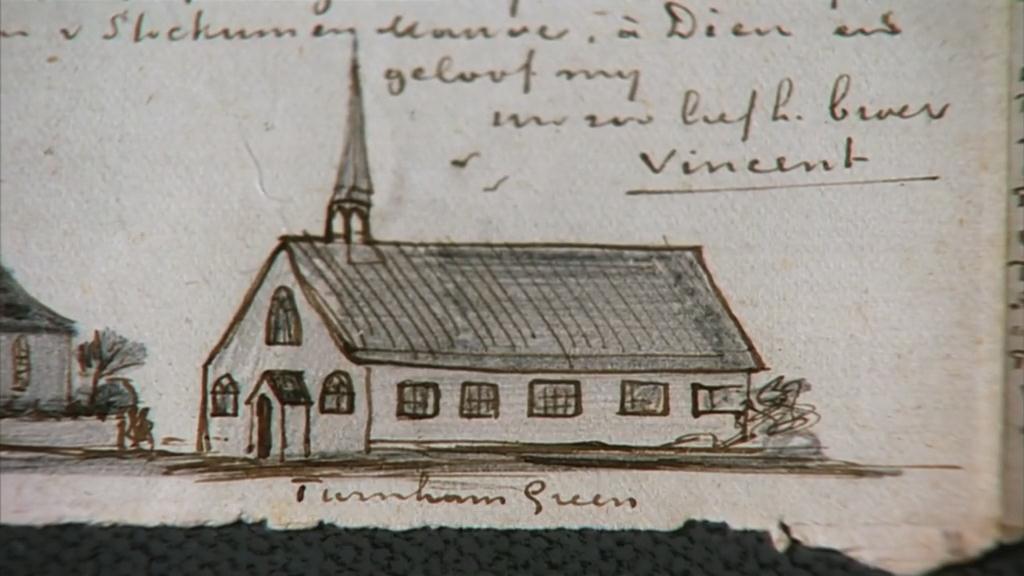 v Stockum en Mauve. à Dieu en
geloof mij
uw zo liefh. broer
Vincent
Turnham Green